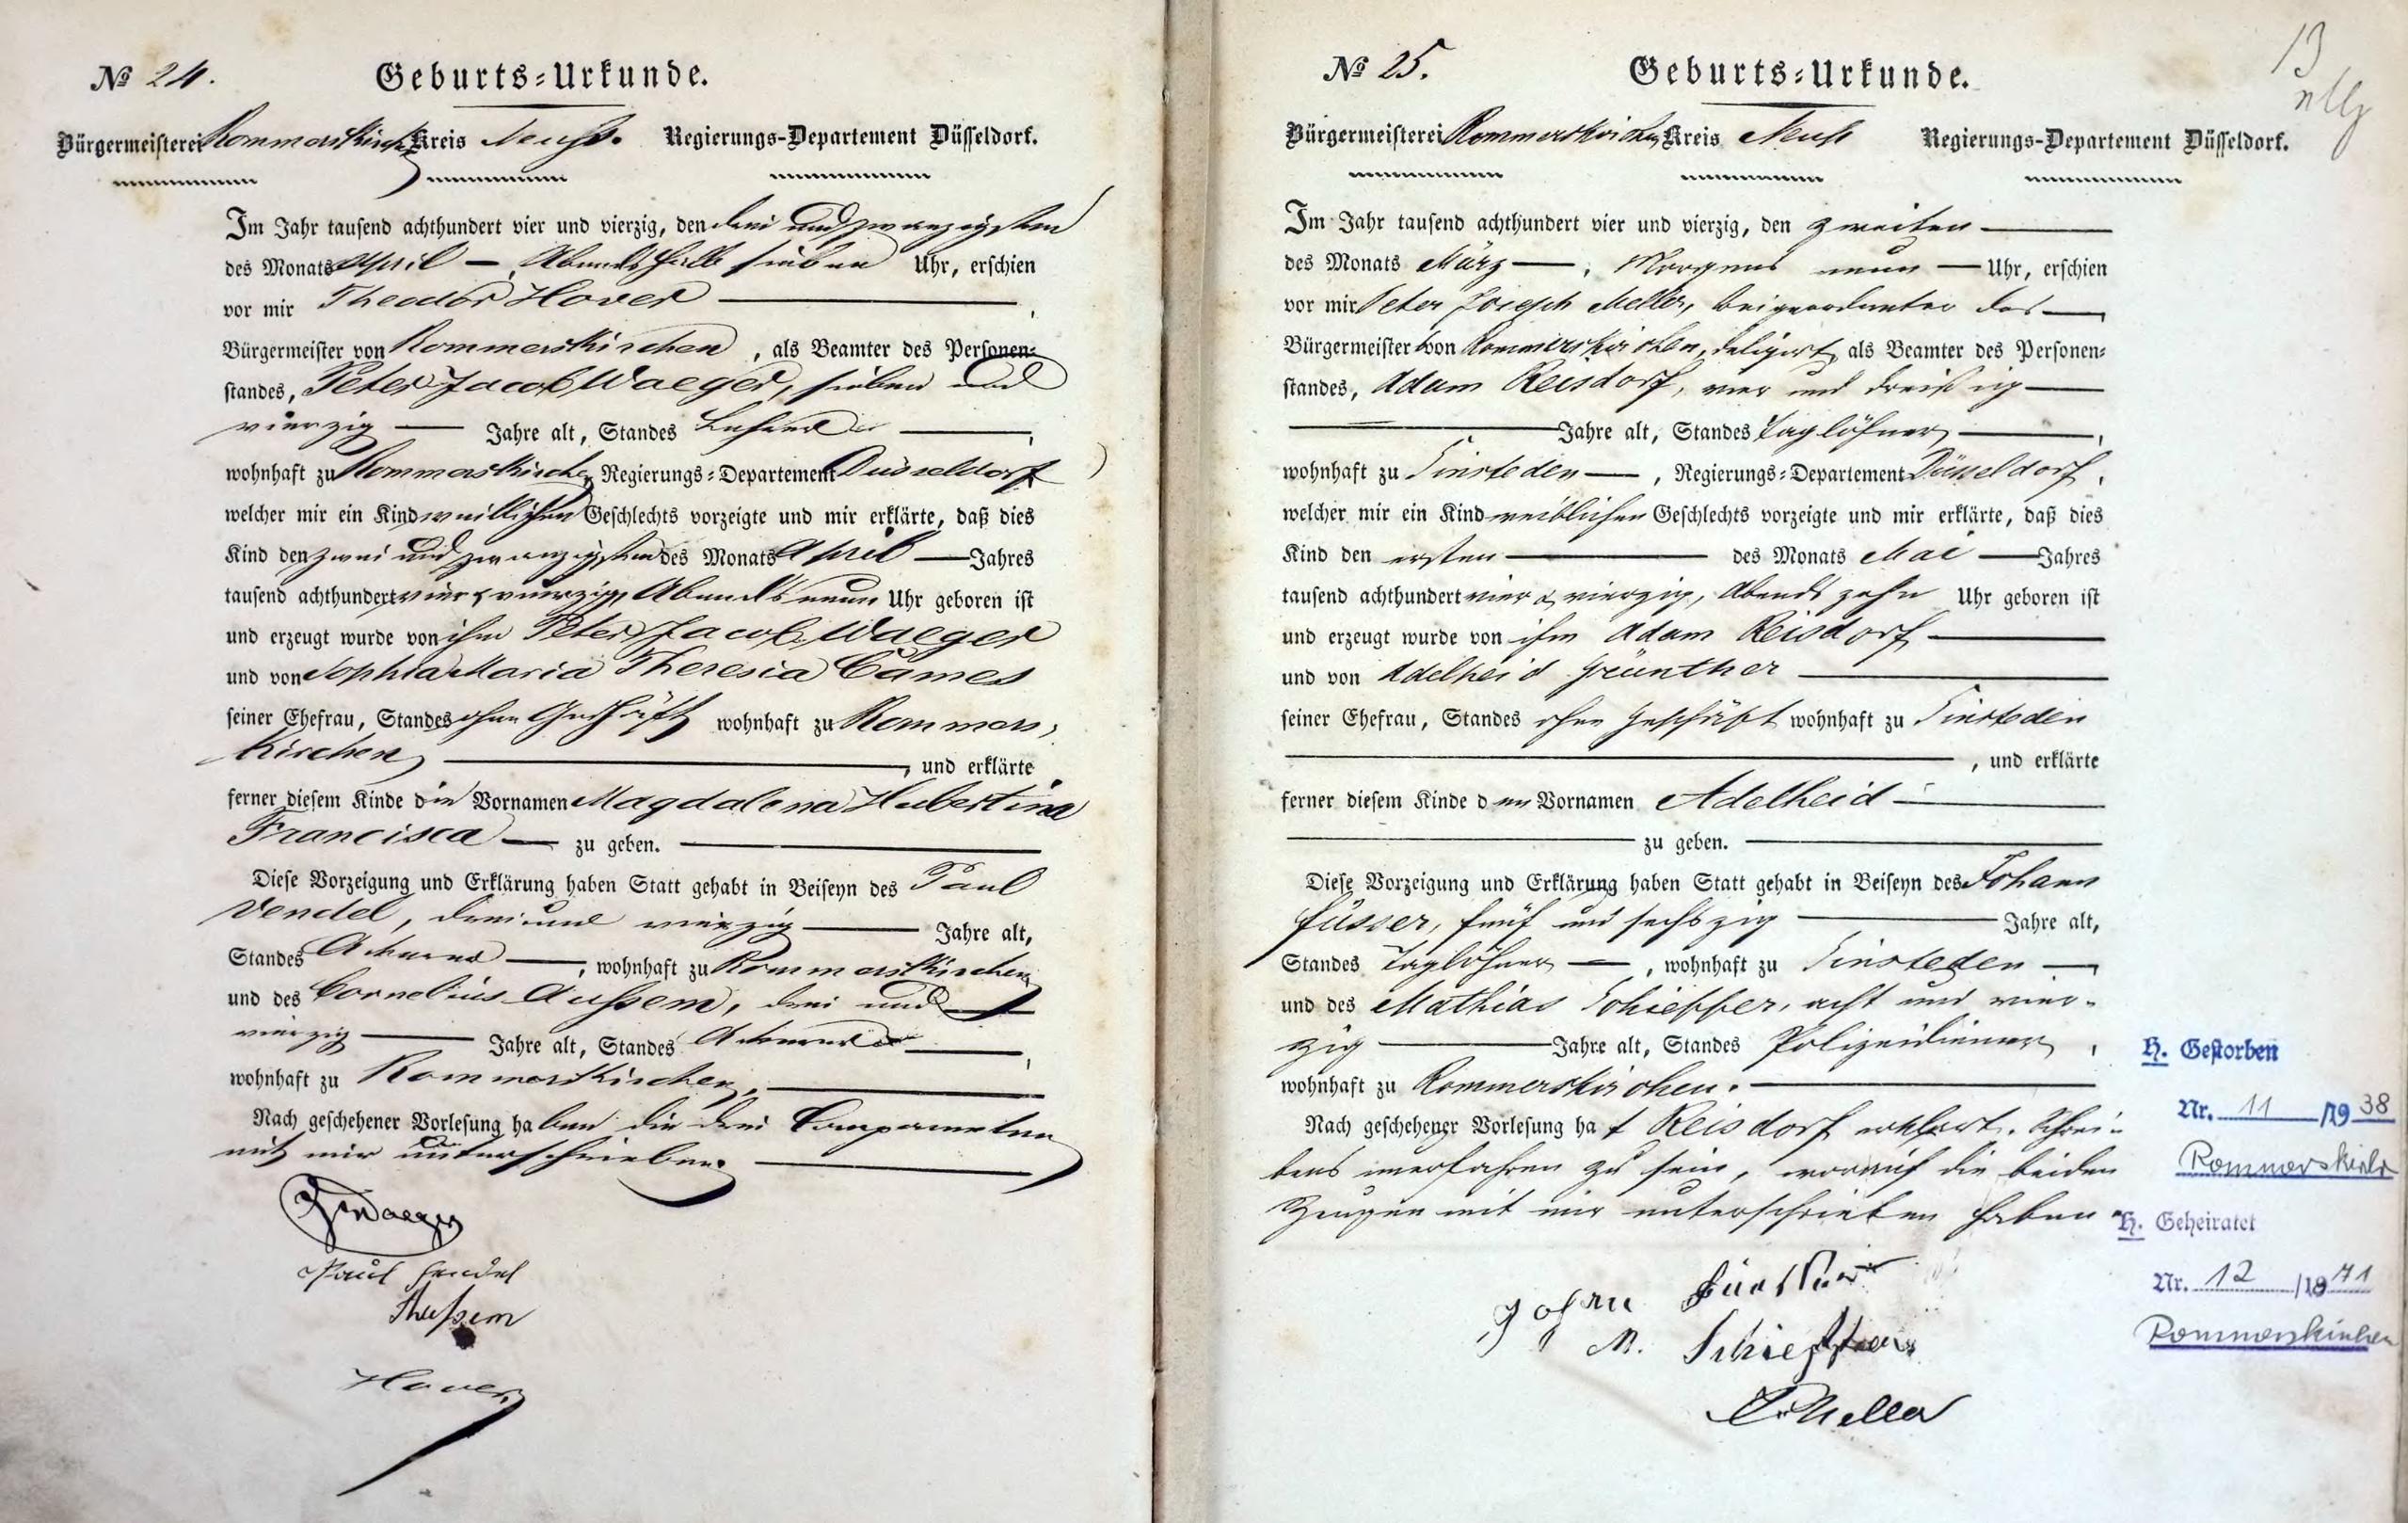 № 24.
Geburts=Urkunde.
Bürgermeisterei Rommerskirchen Kreis Neuß. Regierungs-Departement Düsseldorf.
Im Jahr tausend achthundert vier und vierzig, den drei und zwanzigsten
des Monats April —, Abends halb sieben Uhr, erschien
vor mir Theodor Hover —,
Bürgermeister von Rommerskirchen, als Beamter des Personen=
standes, Peter Jacob Waeger, sieben und
vierzig — Jahre alt, Standes Lehrer —,
wohnhaft zu Rommerskirchen Regierungs=Departement Düsseldorf
welcher mir ein Kind weiblichen Geschlechts vorzeigte und mir erklärte, daß dies
Kind den zwei und zwanzigsten des Monats April — Jahres
tausend achthundert vier & vierzig, Abends neun Uhr geboren ist
und erzeugt wurde von ihm Peter Jacob Waeger
und von Sophia Maria Theresia Cames
seiner Ehefrau, Standes ohne Geschäft wohnhaft zu Rommers,
kirchen —, und erklärte
ferner diesem Kinde die Vornamen Magdalena Hubertina
Francisca — zu geben. —
Diese Vorzeigung und Erklärung haben Statt gehabt in Beiseyn des Paul
Vendel, drei und vierzig — Jahre alt,
Standes Ackerer —, wohnhaft zu Rommerskirchen
und des Cornelius Aussem, drei und
vierzig — Jahre alt, Standes Ackerer —,
wohnhaft zu Rommerskirchen. —
Nach geschehener Vorlesung haben die drei Comparenten
mit mir unterschrieben. —
Waeger
Paul Fendel
Aussem
Hover
№ 25.
Geburts=Urkunde.
13
Bürgermeisterei Rommerskirchen Kreis Neuß Regierungs-Departement Düsseldorf.
Im Jahr tausend achthundert vier und vierzig, den zweiten —
des Monats März —, Morgens neun — Uhr, erschien
vor mir Peter Joseph Meller, Beigeordneter des —
Bürgermeister von Rommerskirchen, deligirt, als Beamter des Personen=
standes, Adam Reisdorf, vier und dreißig —
— Jahre alt, Standes Taglöhner —,
wohnhaft zu Sinsteden —, Regierungs=Departement Düsseldorf,
welcher mir ein Kind weiblichen Geschlechts vorzeigte und mir erklärte, daß dies
Kind den ersten — des Monats Mai — Jahres
tausend achthundert vier & vierzig, Abends zehn Uhr geboren ist
und erzeugt wurde von ihm Adam Reisdorf —
und von Adelheid Grünther —
seiner Ehefrau, Standes ohne Geschäft wohnhaft zu Sinsteden
—, und erklärte
ferner diesem Kinde den Vornamen Adelheid —
— zu geben. —
Diese Vorzeigung und Erklärung haben Statt gehabt in Beiseyn des Johann
Füsser, fünf und sechszig — Jahre alt,
Standes Taglöhner —, wohnhaft zu Sinsteden —
und des Mathias Schieffer, acht und vier-
zig — Jahre alt, Standes Polizeidiener,
wohnhaft zu Rommerskirchen. —
Nach geschehener Vorlesung hat Reisdorf erklärt, Schrei-
bens unerfahren zu sein, worauf die beiden
Zeugen mit mir unterschrieben haben
Johann
M. Schieffer
Meller
H. Gestorben
Nr. 11 /1938
Rommerskirch
H. Geheiratet
Nr. 12 /1871
Rommerskirchen